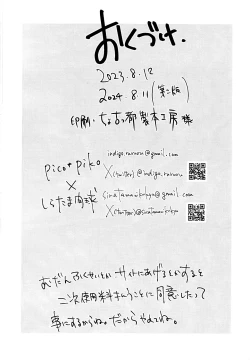 おくづけ.
2023.8.12
2024 8.11(第二版)
印刷・ちょ古っ都製本工房 様
pico+piko
indigo.rainoru@gmail.com
X(twitter)@indigo.rainoru
×
しらたま肉球
X(twitter)
むだんふくせいとかサイトにあげるとかすると
二次使用料はらうことに同意したって
事にするからね。だからやめてね。